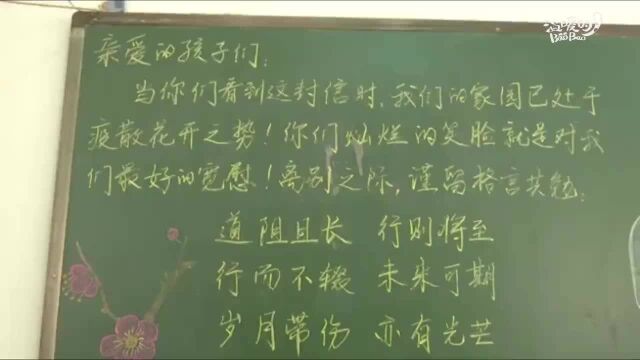 温暖的BaoBao
亲爱的孩子们：
当你们看到这封信时，我们的家园已处于
疫散花开之势！你们灿烂的笑脸就是对我
们最好的宽慰！离别之际，谨留格言共勉：
道阻且长 行则将至
行而不辍 未来可期
岁月带伤 亦有光芒